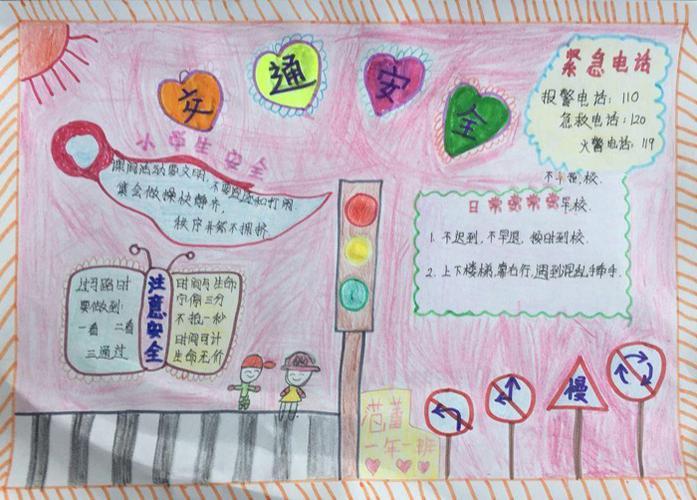 交通安全
紧急电话
报警电话: 110
急救电话: 120
火警电话: 119
小学生安全
课间活动要文明,
不要追逐和打闹
集会做操快静齐,
秩序井然不拥挤.
日常
早校.
1. 不迟到, 不早退, 按时到校.
2. 上下楼梯, 靠右行,
过马路时
要做到:
一看 二看
三通过
注意安全
时间与生命
宁停三分
不抢一秒
时间可计
生命无价
慢
范蕾
一年一班